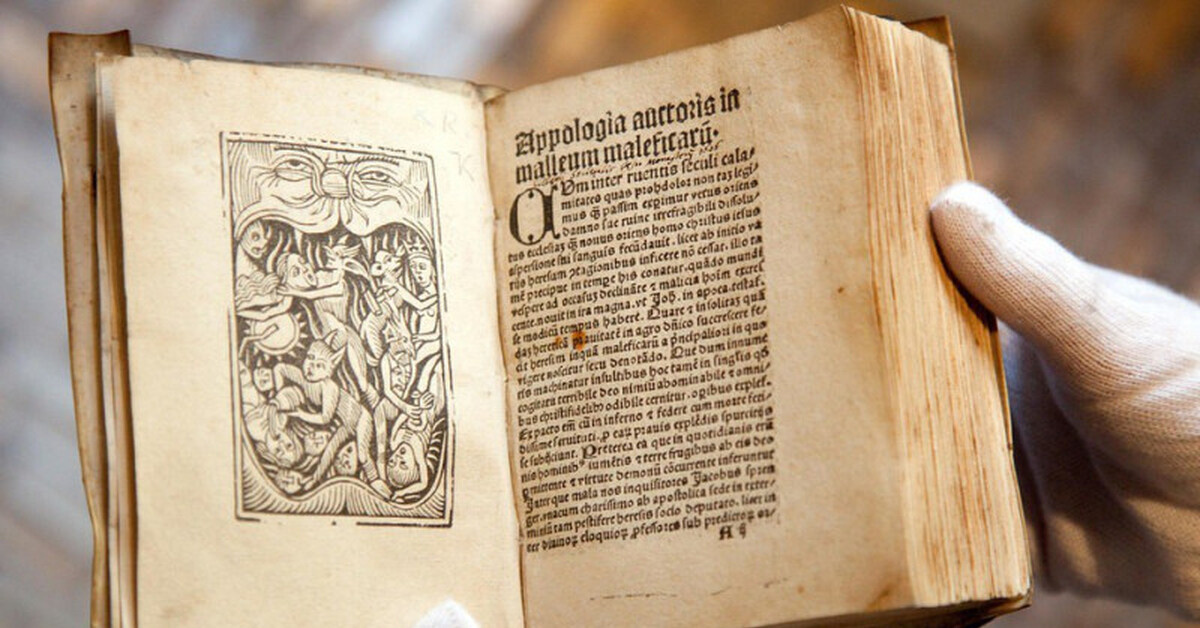 Appologia auctoris in
malleum maleficarū.
CUm inter ruentis seculi cala⸗
mitates quas prohdolor non tā legi
mus ꝙ̄ passim experimur vetus oriens
damno sue ruine irrefragibili dissolu⸗
tus ecclesiaꝫ quā nouus oriens homo christus iesus
aspersione sui sanguīs fecūdauit. licet ab initio va
rijs heresum ꝯtagionibus inficere nō cessat. illo ta
mē precipue in tempe his conatur. quādo mundi
vespere ad occasuꝫ declināte ⁊ malicia hoīm excres
cente. nouit in ira magna. vt Joh. in apoca. testat̄.
se modicū tempus habere. Quare ⁊ insolitaꝫ quā
daꝫ hereticā prauitatē in agro dn̄ico succrescere fe⸗
cit heresim inquā maleficarū a pncipaliori in quo
vigere noscitur sexu denotādo. Que dum innume
ris machinatur insultibus hoc tamē in singlis qd̄
cogitatu terribile deo nimiū abominabile ⁊ omni⸗
bus christifidelibꝰ odibile cernitur. opibus explet̄.
Ex pacto em̄ cū inferno ⁊ federe cum morte feti⸗
dissime seruituti. ꝓ eaꝝ prauis explēdis spurcitijs
se subijciunt. Preterea ea que in quotidianis erū
nis hominibꝰ iumētis ⁊ terre frugibus ab eis deo
pmittente ⁊ virtute demonū cōcurrente inferuntur
Inter que mala nos inquisitores Jacobus spren
ger. vnacum charissimo ab apostolica sede in exter⸗
miniū tam pestifere heresis socio deputato. licet in
ter diuinoꝝ eloquioꝝ ꝓfessores sub predicatoꝝ or⸗
A ij